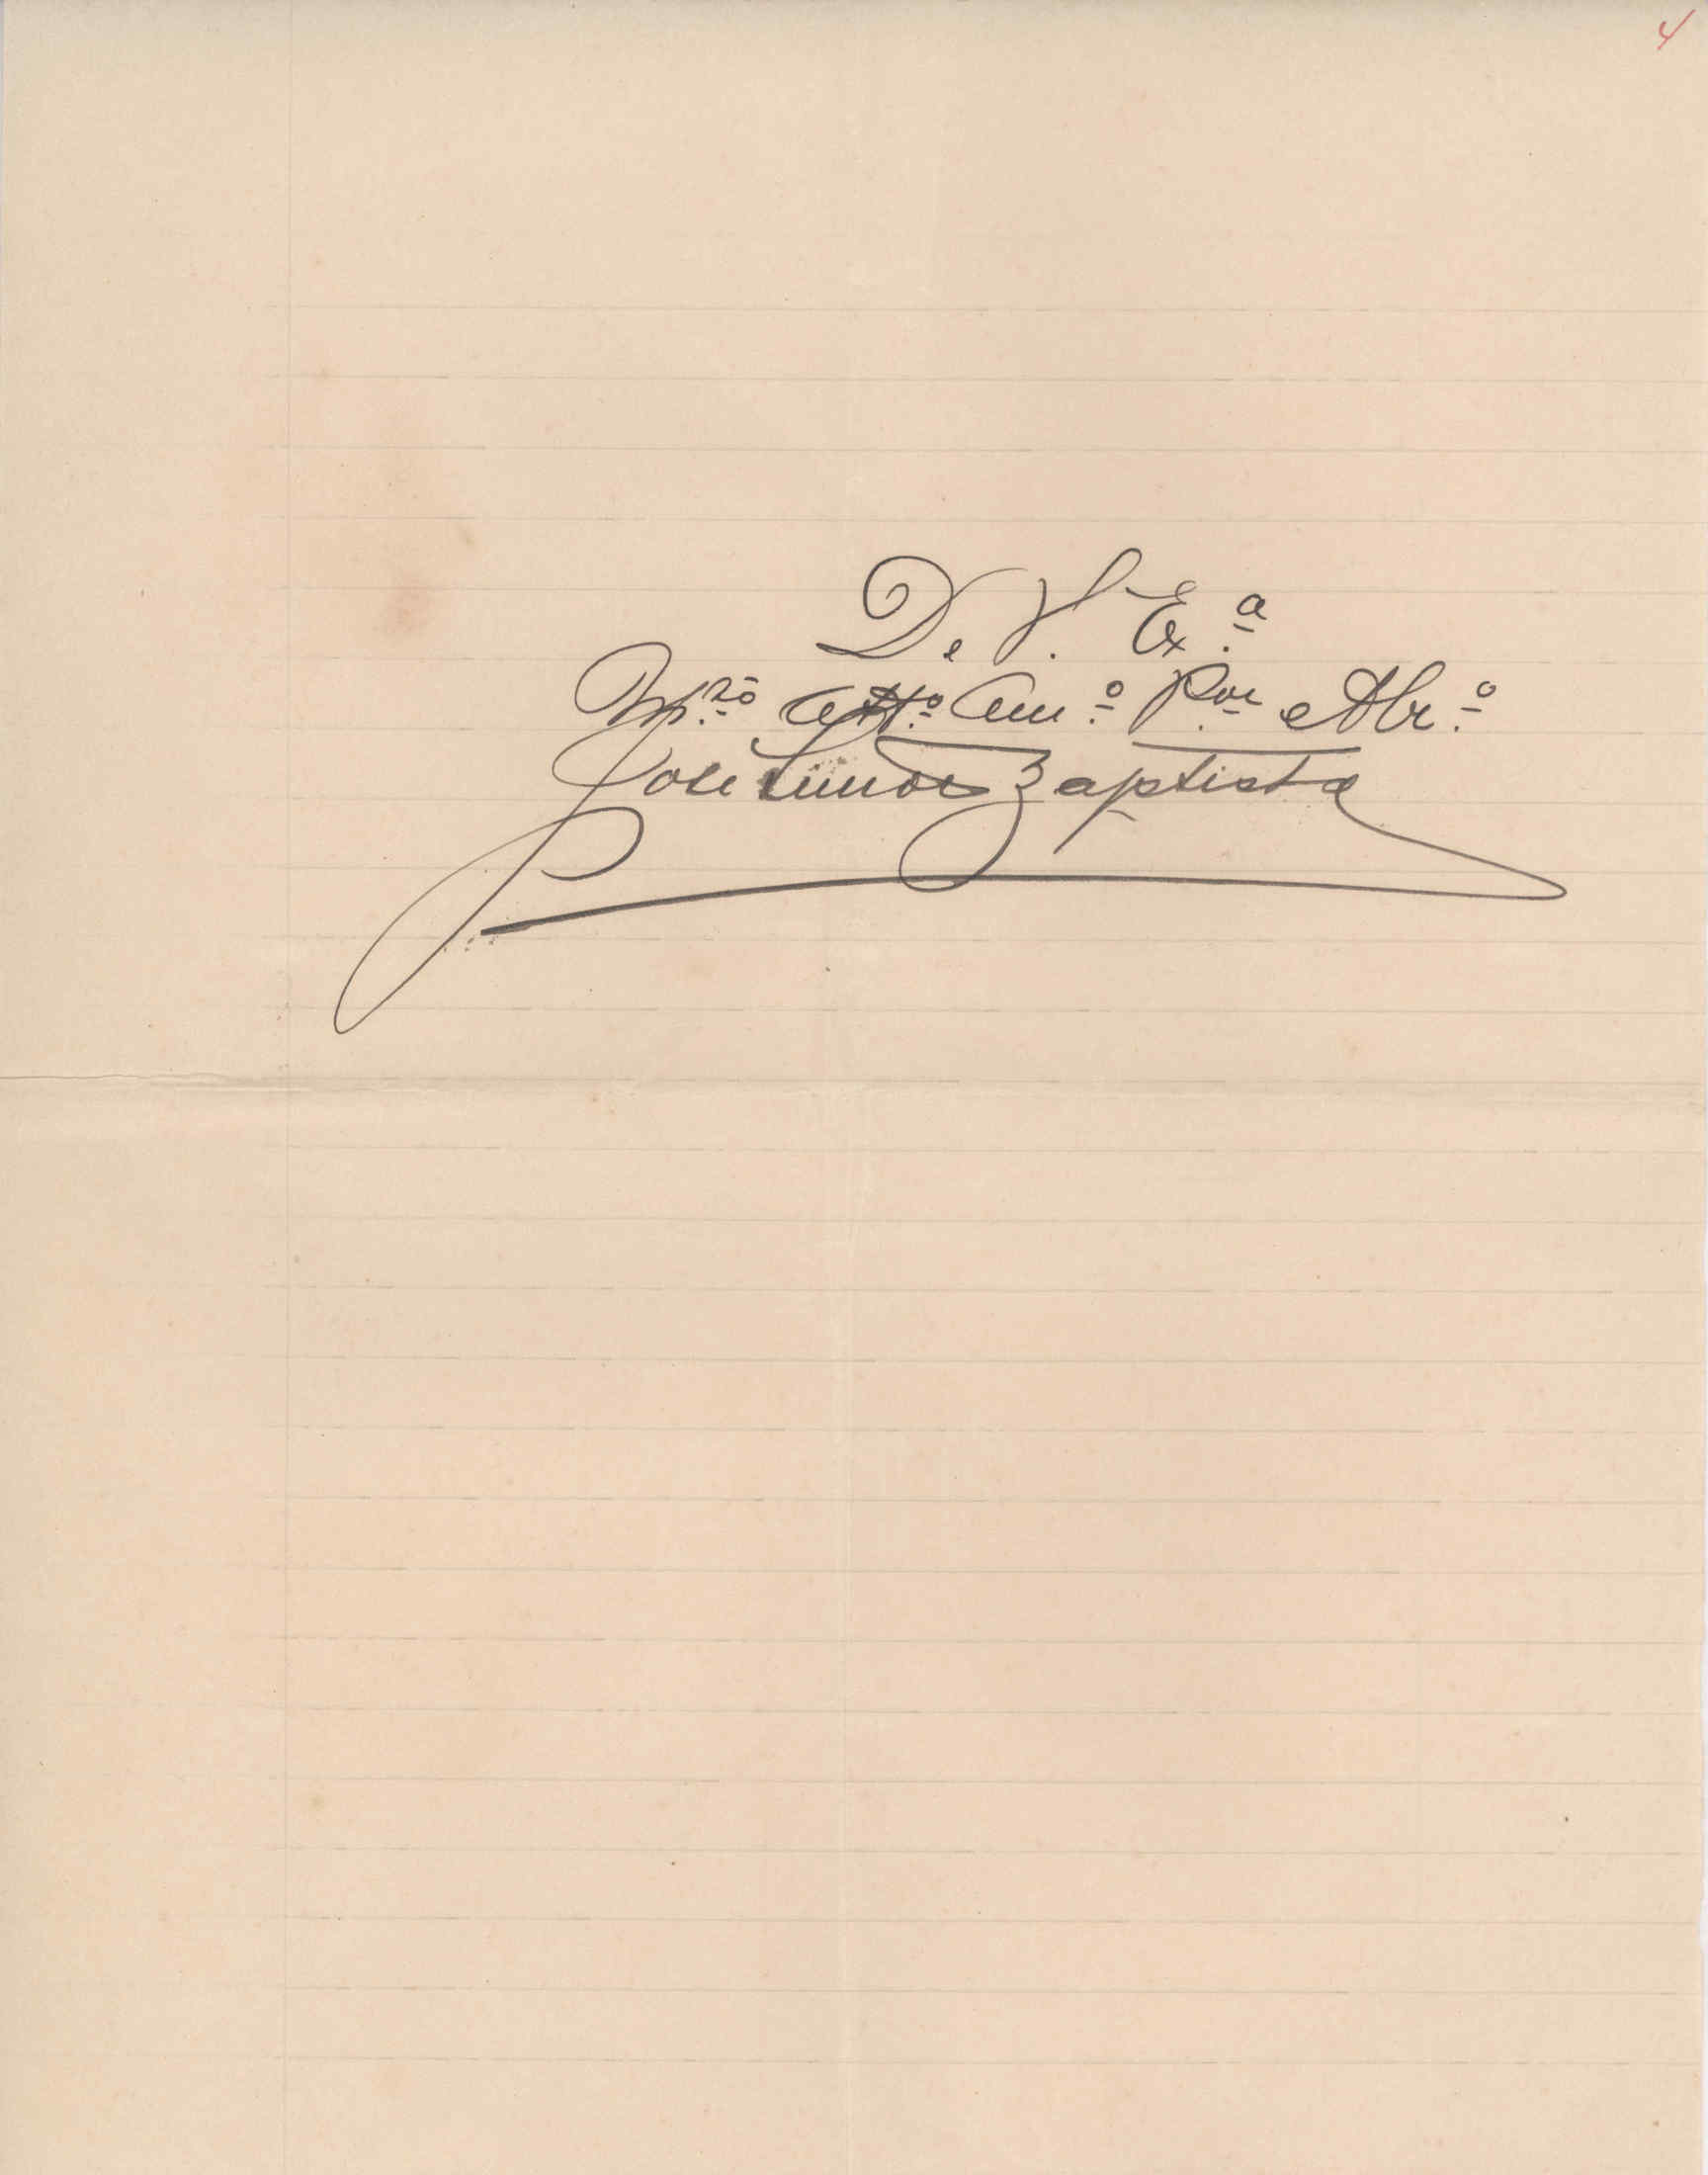 4
De V. Ex.ª
M.ᵗᵒ Att.º Am.º e Abr.º
José Baptista